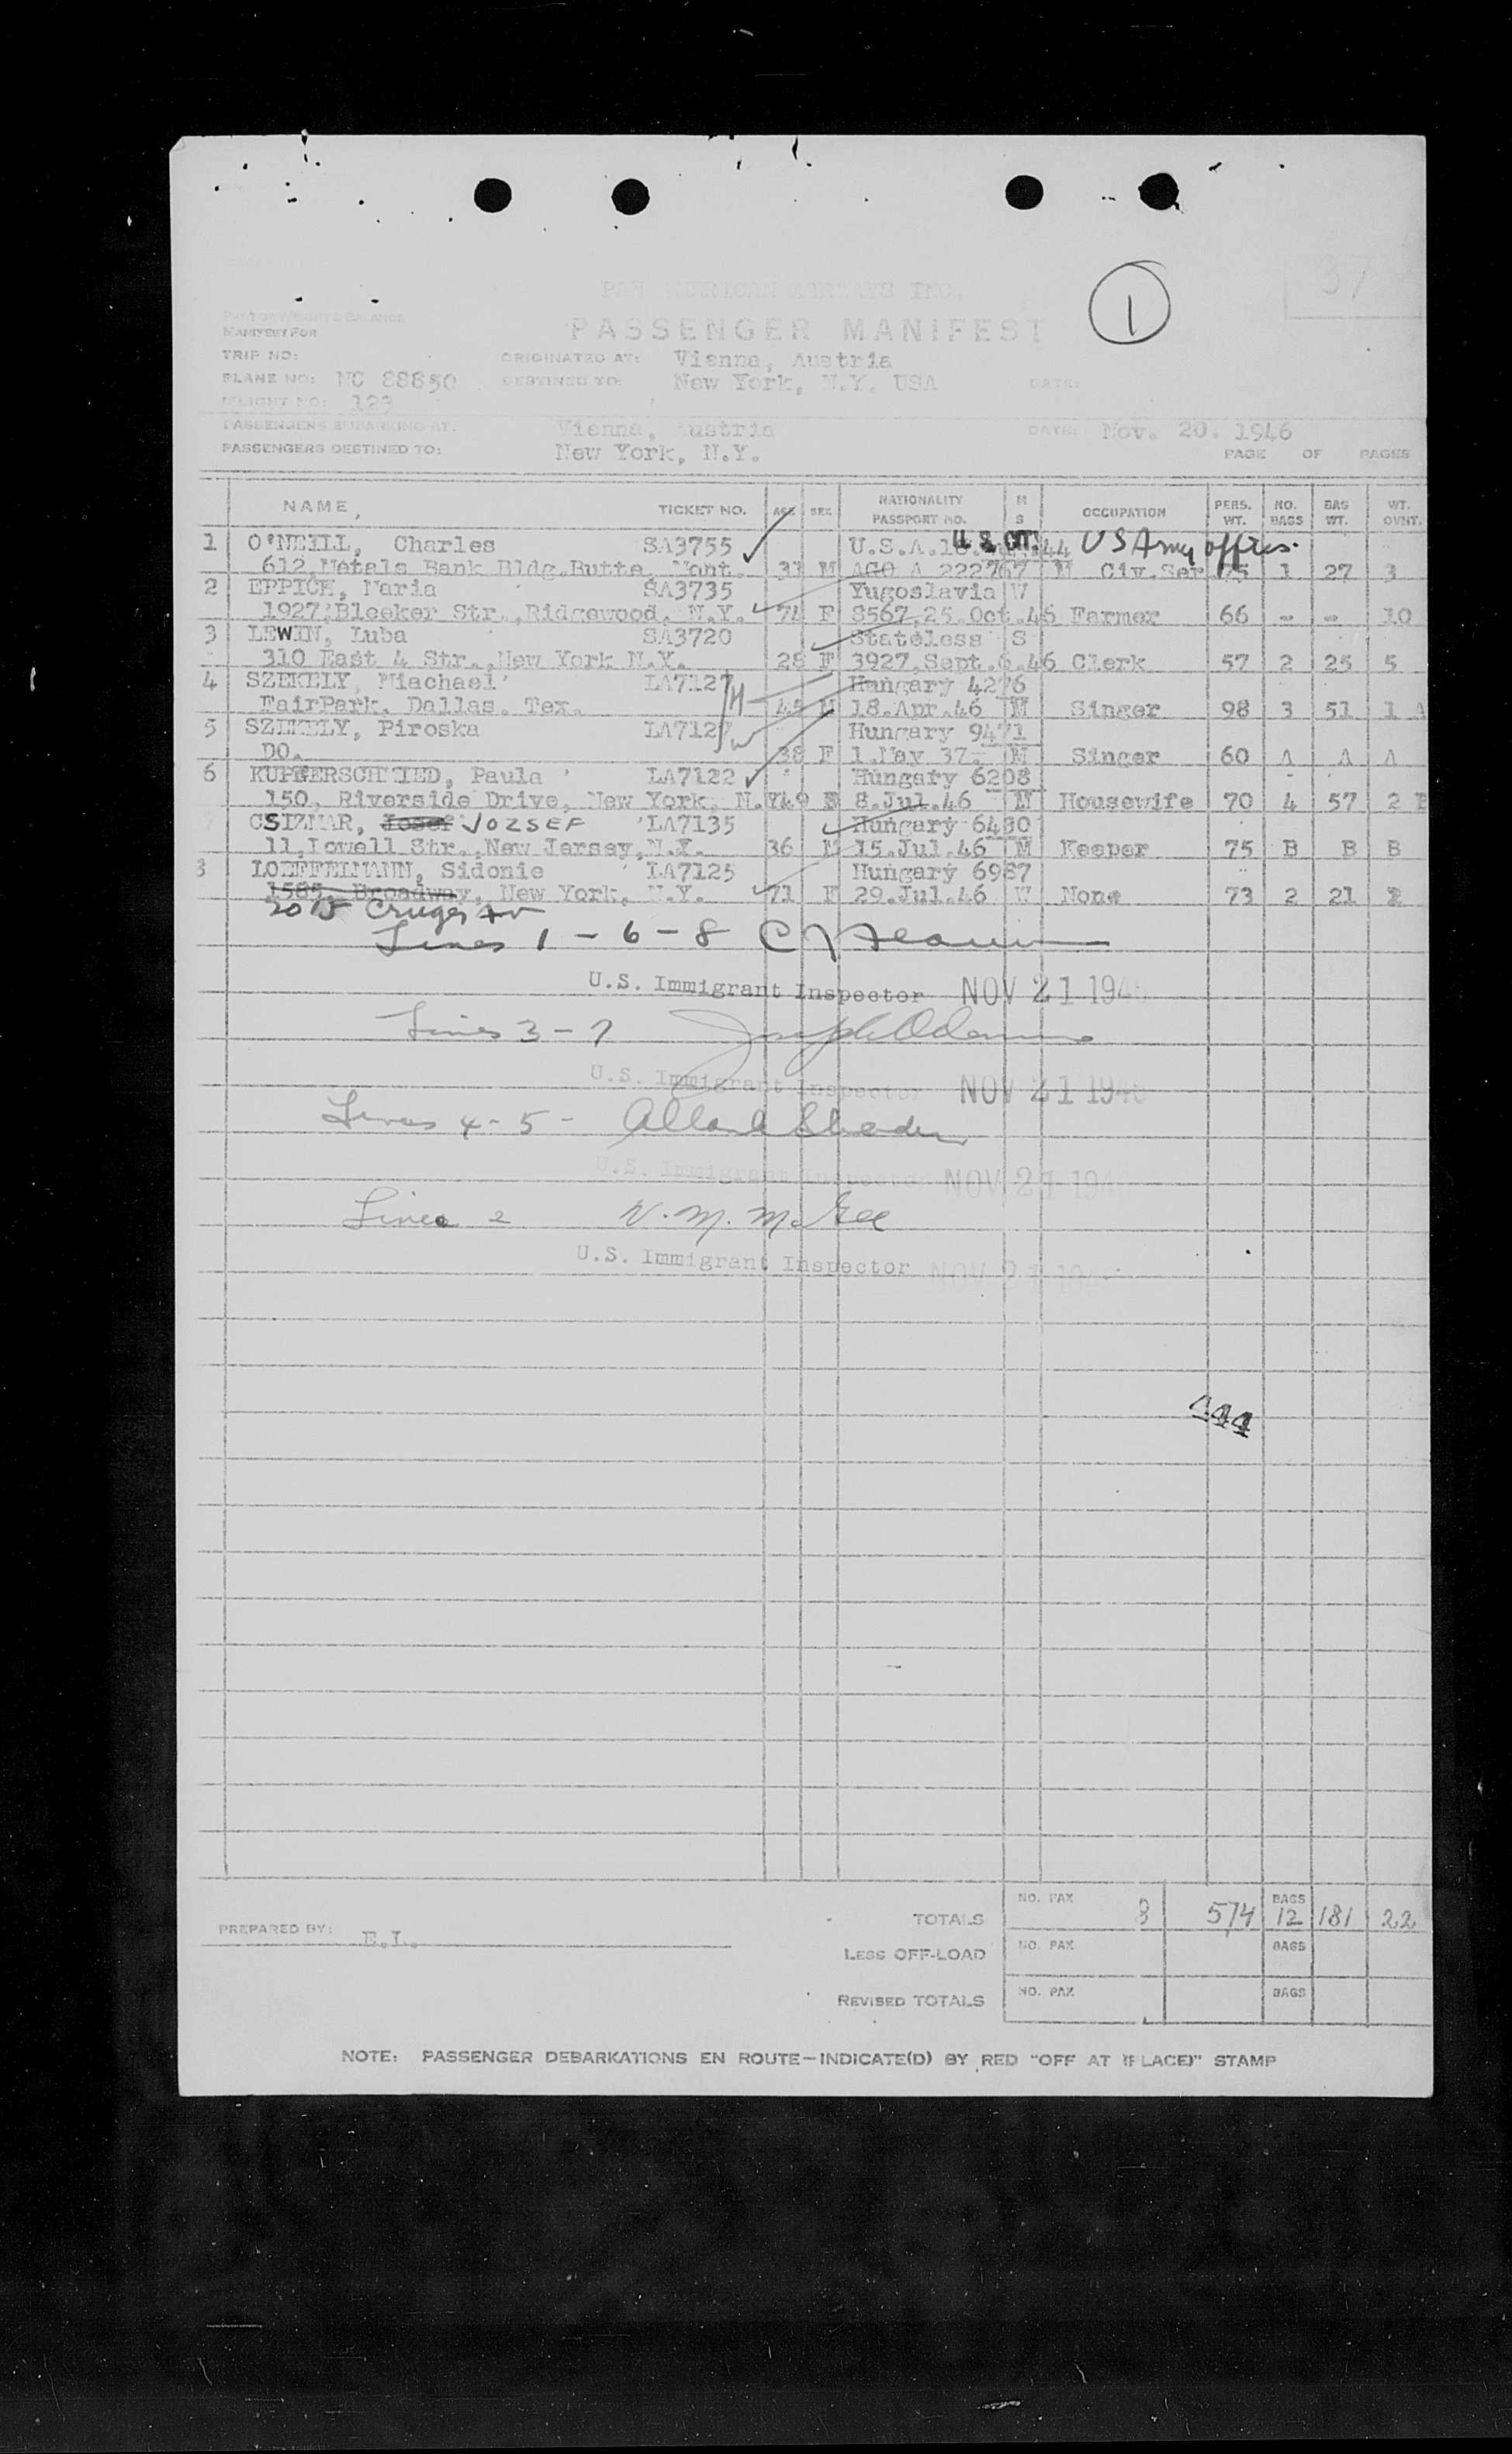 1
37
PAN AMERICAN AIRWAYS INC.
PASSENGER MANIFEST
MANIFEST FOR
TRIP NO: ORIGINATED AT: Vienna, Austria
PLANE NO: NC 88850 DESTINED TO: New York, N.Y. USA DATE:
FLIGHT NO: 123
PASSENGERS EMBARKING AT: Vienna, Austria DATE: Nov. 20. 1946
PASSENGERS DESTINED TO: New York, N.Y. PAGE OF PAGES
NAME, TICKET NO. AGE SEX NATIONALITY PASSPORT NO. M S OCCUPATION PERS. WT. NO. BAGS BAG WT. WT. OVNT.
1 O'NEILL, Charles SA3755 U.S.A. U S CIT. 44 US Army officer.
612, Metals Bank Bldg. Butte, Mont. 31 M AGO A 222767 M Civ.Ser 75 1 27 3
2 EPPICH, Maria SA3735 Yugoslavia W
1927, Bleeker Str., Ridgewood, N.Y. 74 F 8567, 25.Oct.46 Farmer 66 - - 10
3 LEWIN, Luba SA3720 Stateless S
310 East 4 Str., New York N.Y. 28 F 3927, Sept.6.46 Clerk 57 2 25 5
4 SZEKELY, Miachael LA7127/H Hungary 4276
FairPark, Dallas. Tex. 45 M 18.Apr.46 M Singer 98 3 51 1 A
5 SZEKELY, Piroska LA7127/W Hungary 9471
DO. 38 F 1.May 37. M Singer 60 A A A
6 KUPFERSCHMIED, Paula LA7122 Hungary 6208
150, Riverside Drive, New York, N.Y. 49 F 8.Jul.46 M Housewife 70 4 57 2 B
CSIZMAR, Josef JOZSEF LA7135 Hungary 6480
11, Lowell Str., New Jersey, N.Y. 36 M 15.Jul.46 M Keeper 75 B B B
8 LOEFFELMANN, Sidonie LA7125 Hungary 6987
1585, Broadway, New York, N.Y. 71 F 29.Jul.46 W None 73 2 21 2
2015 Cruger Av
Lines 1 - 6 - 8
U.S. Immigrant Inspector NOV 21 1946
Lines 3 - 7 Joseph
U.S. Immigrant Inspector NOV 21 1946
Lines 4 - 5 -
U.S. Immigrant Inspector NOV 21 194
Lines 2 W. M. McGee
U.S. Immigrant Inspector NOV 21 194
444
TOTALS NO. PAX 8 574 BAGS 12 181 22
PREPARED BY: E.L.
LESS OFF-LOAD NO. PAX BAGS
REVISED TOTALS NO. PAX BAGS
NOTE: PASSENGER DEBARKATIONS EN ROUTE—INDICATE(D) BY RED "OFF AT (PLACE)" STAMP